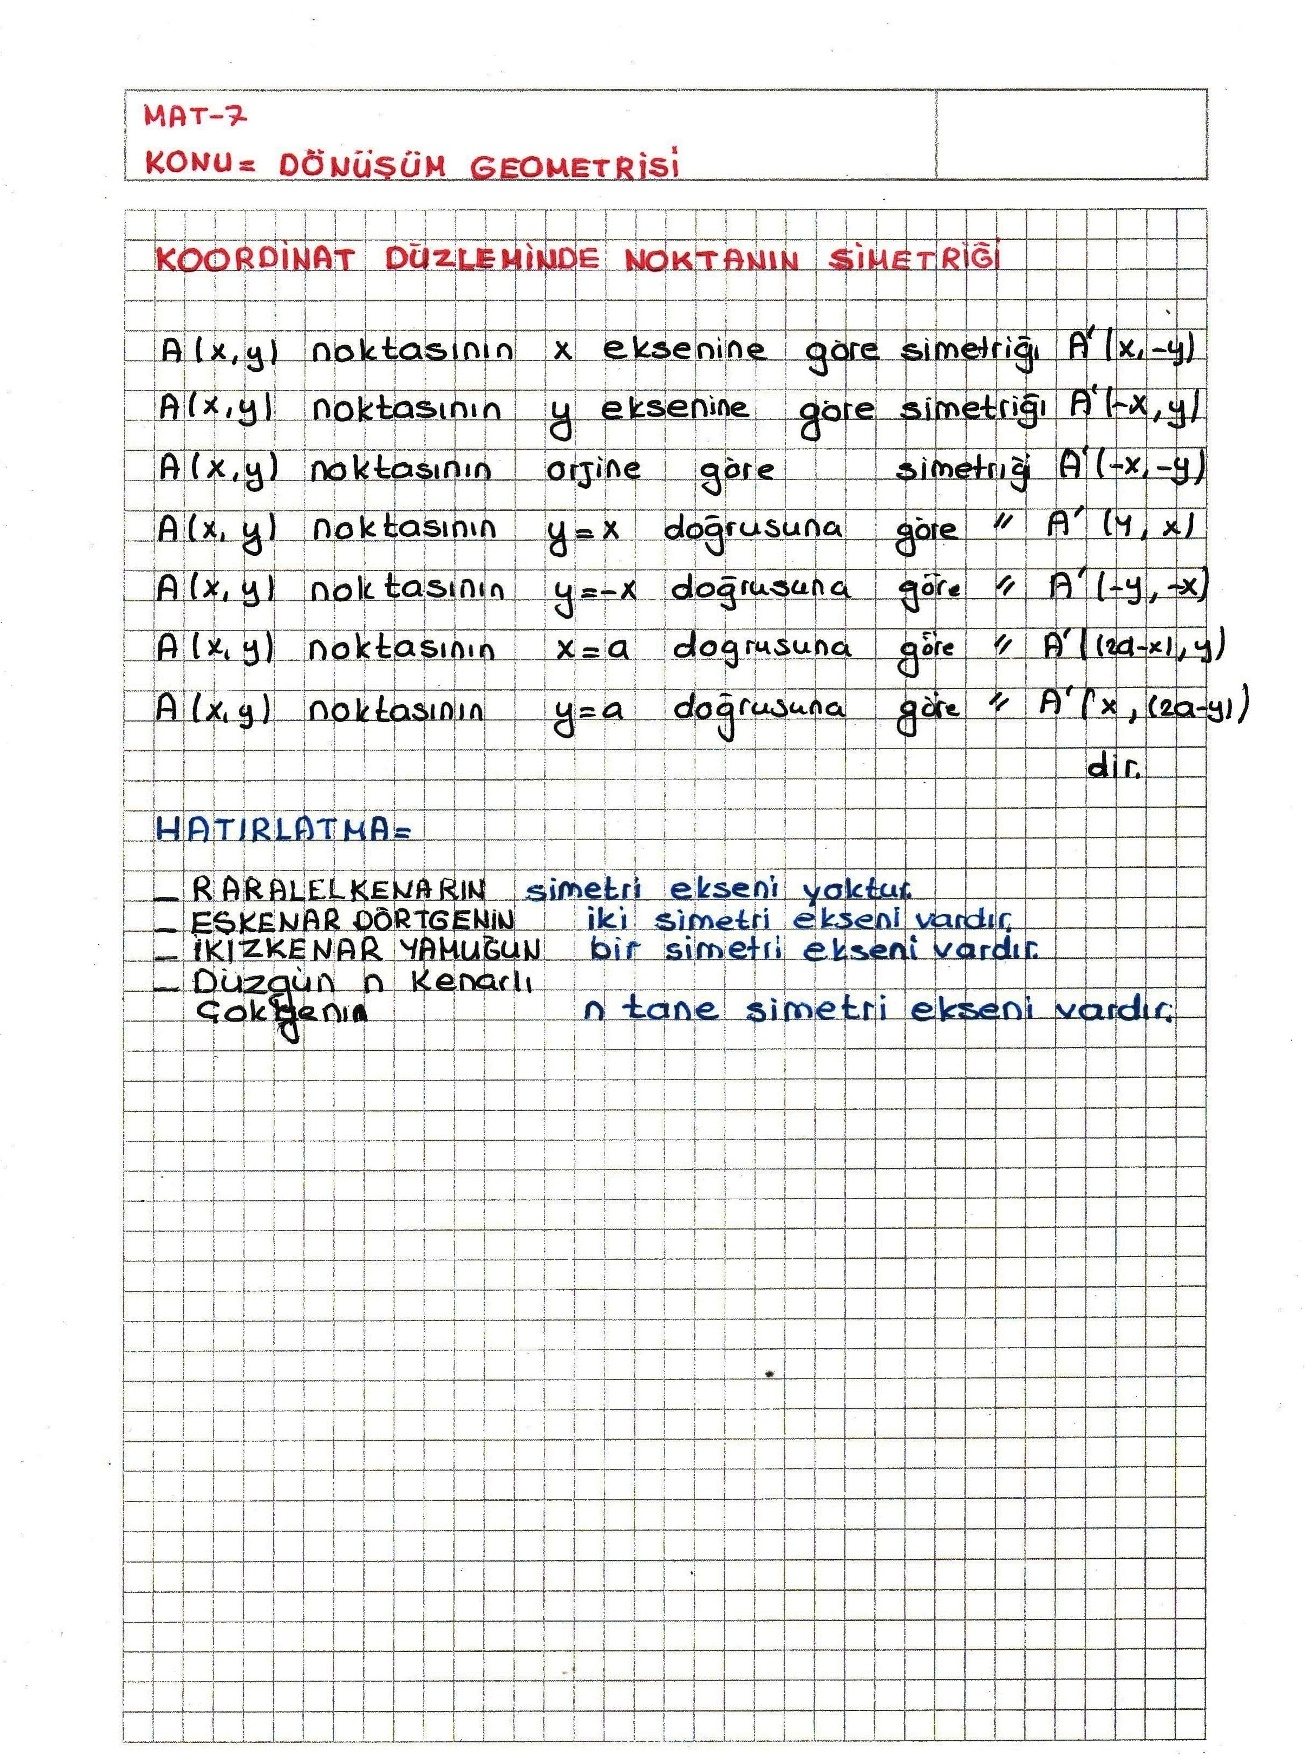 MAT-7
KONU= DÖNÜŞÜM GEOMETRİSİ
KOORDİNAT DÜZLEMİNDE NOKTANIN SİMETRİĞİ
A(x,y) noktasının x eksenine göre simetriği A'(x,-y)
A(x,y) noktasının y eksenine göre simetriği A'(-x,y)
A(x,y) noktasının orjine göre simetriği A'(-x,-y)
A(x,y) noktasının y=x doğrusuna göre " A'(y,x)
A(x,y) noktasının y=-x doğrusuna göre " A'(-y,-x)
A(x,y) noktasının x=a dogrusuna göre " A'((2a-x),y)
A(x,y) noktasının y=a doğrusuna göre " A'(x,(2a-y))
dir.
HATIRLATMA=
- RARALELKENARIN simetri ekseni yoktur.
- EŞKENAR DÖRTGENİN iki simetri ekseni vardır.
- İKİZKENAR YAMUĞUN bir simetri ekseni vardır.
- Düzgün n Kenarlı
Çokgenin n tane simetri ekseni vardır.